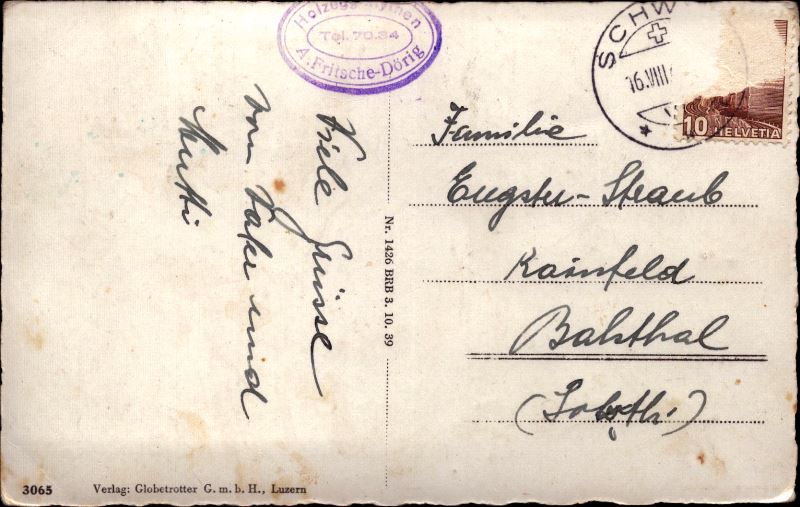 Holzegg
A. Fritsche-Dörig
Tel. 70.34
SCHW
16.VIII
10 HELVETIA
Viele Grüsse
von Vater und
Mutti
Nr. 1426 BRB 3. 10. 39
Familie
Eugster-Straub
Rainfeld
Balsthal
(Soloth.)
3065 Verlag: Globetrotter G. m. b. H., Luzern